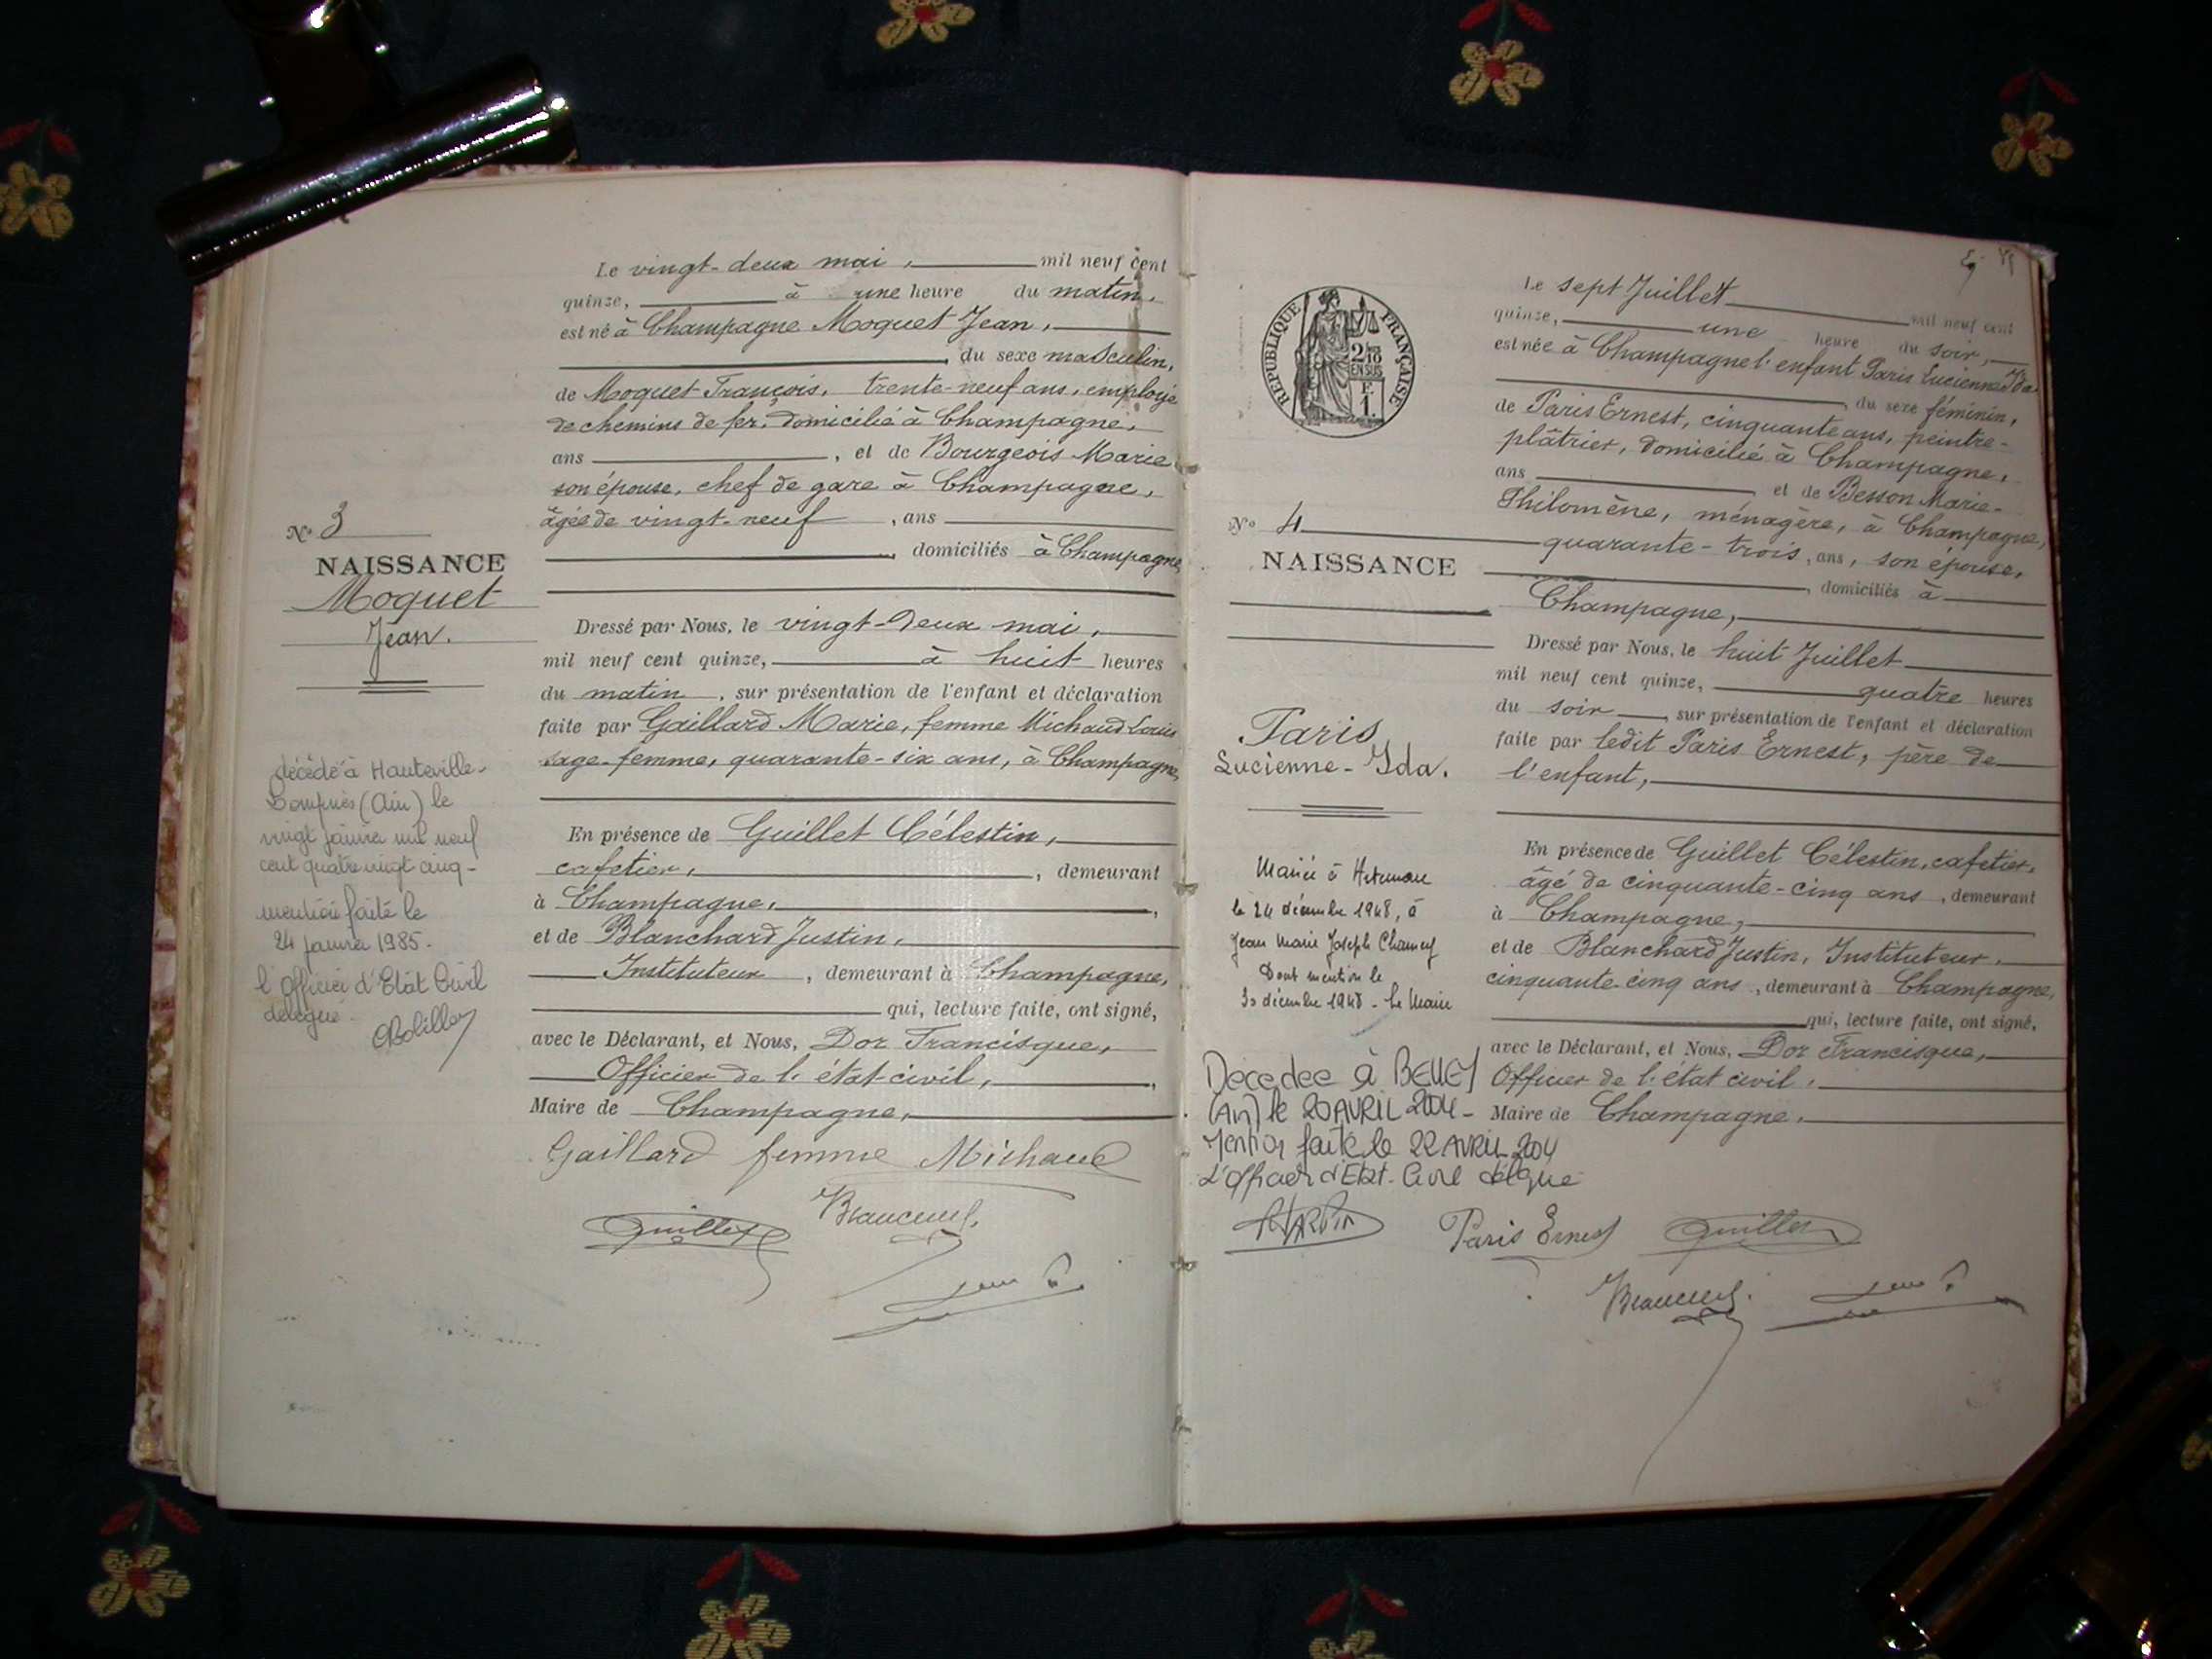 Le vingt-deux mai, mil neuf cent
quinze, à une heure du matin,
est né à Champagne Moquet Jean,
, du sexe masculin,
de Moquet François, trente-neuf ans, employé
de chemins de fer, domicilié à Champagne,
ans , et de Bourgeois Marie
son épouse, chef de gare à Champagne,
âgée de vingt-neuf , ans
, domiciliés à Champagne
N° 3
NAISSANCE
Moquet
Jean.
Dressé par Nous, le vingt-deux mai,
mil neuf cent quinze, à huit heures
du matin , sur présentation de l'enfant et déclaration
faite par Gaillard Marie, femme Michaud Louis
sage-femme, quarante-six ans, à Champagne,
décédé à Hauteville-
Lompnes (Ain) le
vingt janvier mil neuf
cent quatre vingt cinq -
mention faite le
24 janvier 1985.
l'Officier d'Etat Civil
délégué.
En présence de Guillet Célestin,
cafetier, , demeurant
à Champagne, ,
et de Blanchard Justin,
Instituteur , demeurant à Champagne,
qui, lecture faite, ont signé,
avec le Déclarant, et Nous, Dor Francisque,
Officier de l'état-civil, ,
Maire de Champagne,
Gaillard femme Michaud
Guillet
RÉPUBLIQUE FRANÇAISE
2/10
EN SUS
F.
1.
Le sept Juillet mil neuf cent
quinze, une heure du soir,
est née à Champagne l'enfant Paris Lucienne Ida
, du sexe féminin,
de Paris Ernest, cinquante ans, peintre-
plâtrier, domicilié à Champagne,
ans , et de Besson Marie-
Philomène, ménagère, à Champagne,
quarante-trois, ans, son épouse,
, domiciliés à
Champagne,
N° 4
NAISSANCE
Paris
Lucienne-Ida.
Dressé par Nous, le huit Juillet
mil neuf cent quinze, quatre heures
du soir , sur présentation de l'enfant et déclaration
faite par ledit Paris Ernest, père de
l'enfant,
Mariée à
le 24 décembre 1948, à
Jean Marie Joseph
Dont mention le
30 décembre 1948 - Le Maire
Décédée à BELLEY
(Ain) le 20 AVRIL 2004 -
Mention faite le 22 AVRIL 2004
L'Officier d'Etat-Civil délégué
En présence de Guillet Célestin, cafetier,
âgé de cinquante-cinq ans , demeurant
à Champagne,
et de Blanchard Justin, Instituteur,
cinquante-cinq ans , demeurant à Champagne,
qui, lecture faite, ont signé,
avec le Déclarant, et Nous, Dor Francisque,
Officier de l'état civil,
Maire de Champagne,
Paris Ernest Guillet